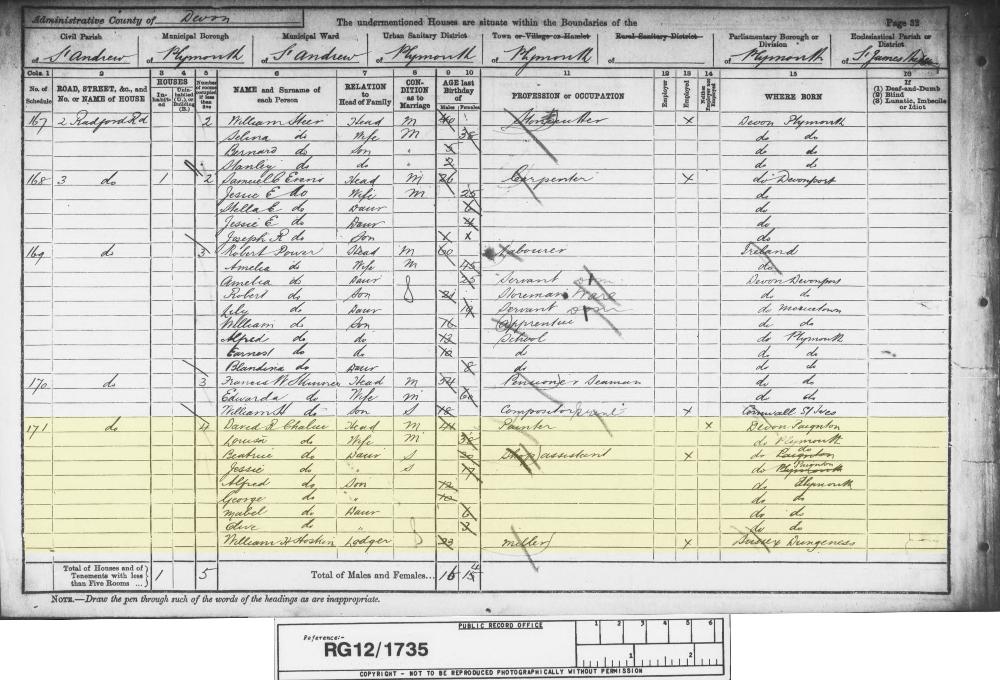 Administrative County of Devon The undermentioned Houses are situate within the Boundaries of the Page 32
Civil Parish Municipal Borough Municipal Ward Urban Sanitary District Town or Village or Hamlet Rural Sanitary District Parliamentary Borough or Division Ecclesiastical Parish or District
of St Andrew of Plymouth of St Andrew of Plymouth of Plymouth of of Plymouth of St James
Cols. 1 2 3 4 5 6 7 8 9 10 11 12 13 14 15 16
No. of Schedule ROAD, STREET, &c., and No. or NAME of HOUSE HOUSES Inhabited Uninhabited (U.), or Building (B.) Number of rooms occupied if less than five NAME and Surname of each Person RELATION to Head of Family CONDITION as to Marriage AGE last Birthday of Males Females PROFESSION or OCCUPATION Employer Employed Neither Employer nor Employed WHERE BORN If (1) Deaf-and-Dumb (2) Blind (3) Lunatic, Imbecile or Idiot
167 2 Radford Rd 2 William Steer Head M 40 Stonecutter X Devon Plymouth
Selina do Wife M 38 do do
Bernard do Son " 5 do do
Stanley do do " 2 do do
168 3 do 1 2 Samuel C Evans Head M 26 Carpenter X do Devonport
Jessie E do Wife M 25 do
Stella E do Daur 6 do
Jessie E do Daur 4 do
Joseph R do Son do
169 do 3 Robert Power Head M 60 Labourer Ireland
Amelia do Wife M 45 do
Amelia do Daur 25 Servant Dom Devon Devonport
Robert do Son 21 Storeman Ware do do
Lily do Daur 19 Servant Dom do Moricetown
William do Son 16 Apprentice do do
Alfred do do 12 School do Plymouth
Earnest do do 10 do do do
Blandina do Daur 8 do do do
170 do 3 Francis W Skinner Head M 54 Pensioner Seaman do do
Edwarda do Wife M 60 do do
William H do Son S 18 Compositor X Cornwall St Ives
171 do 4 David R Chalice Head M 41 Painter X Devon Paignton
Louisa do Wife M 38 do Plymouth
Beatrice do Daur S 20 Shop assistant X do Paignton do
Jessie do Daur S 17 do Plymouth Paignton
Alfred do Son 12 do Plymouth
George do " 10 do do
Mabel do Daur 6 do do
Olive do " 2 do do
William H Hoskin Lodger S 23 Miller X Sussex Dungeness
Total of Houses and of Tenements with less than Five Rooms ... 1 5 Total of Males and Females... 16 15 4
NOTE.—Draw the pen through such of the words of the headings as are inappropriate.
PUBLIC RECORD OFFICE
Reference:-
RG12/1735
1 2 3 4 5 6
1 2
COPYRIGHT - NOT TO BE REPRODUCED PHOTOGRAPHICALLY WITHOUT PERMISSION